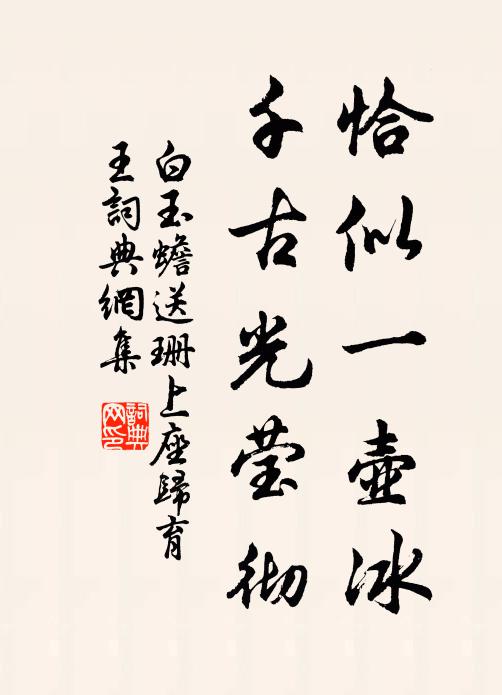 恰似一壺冰
千古光莹彻
白玉蟾送珊上座歸育
王詞典網集
詞典网印